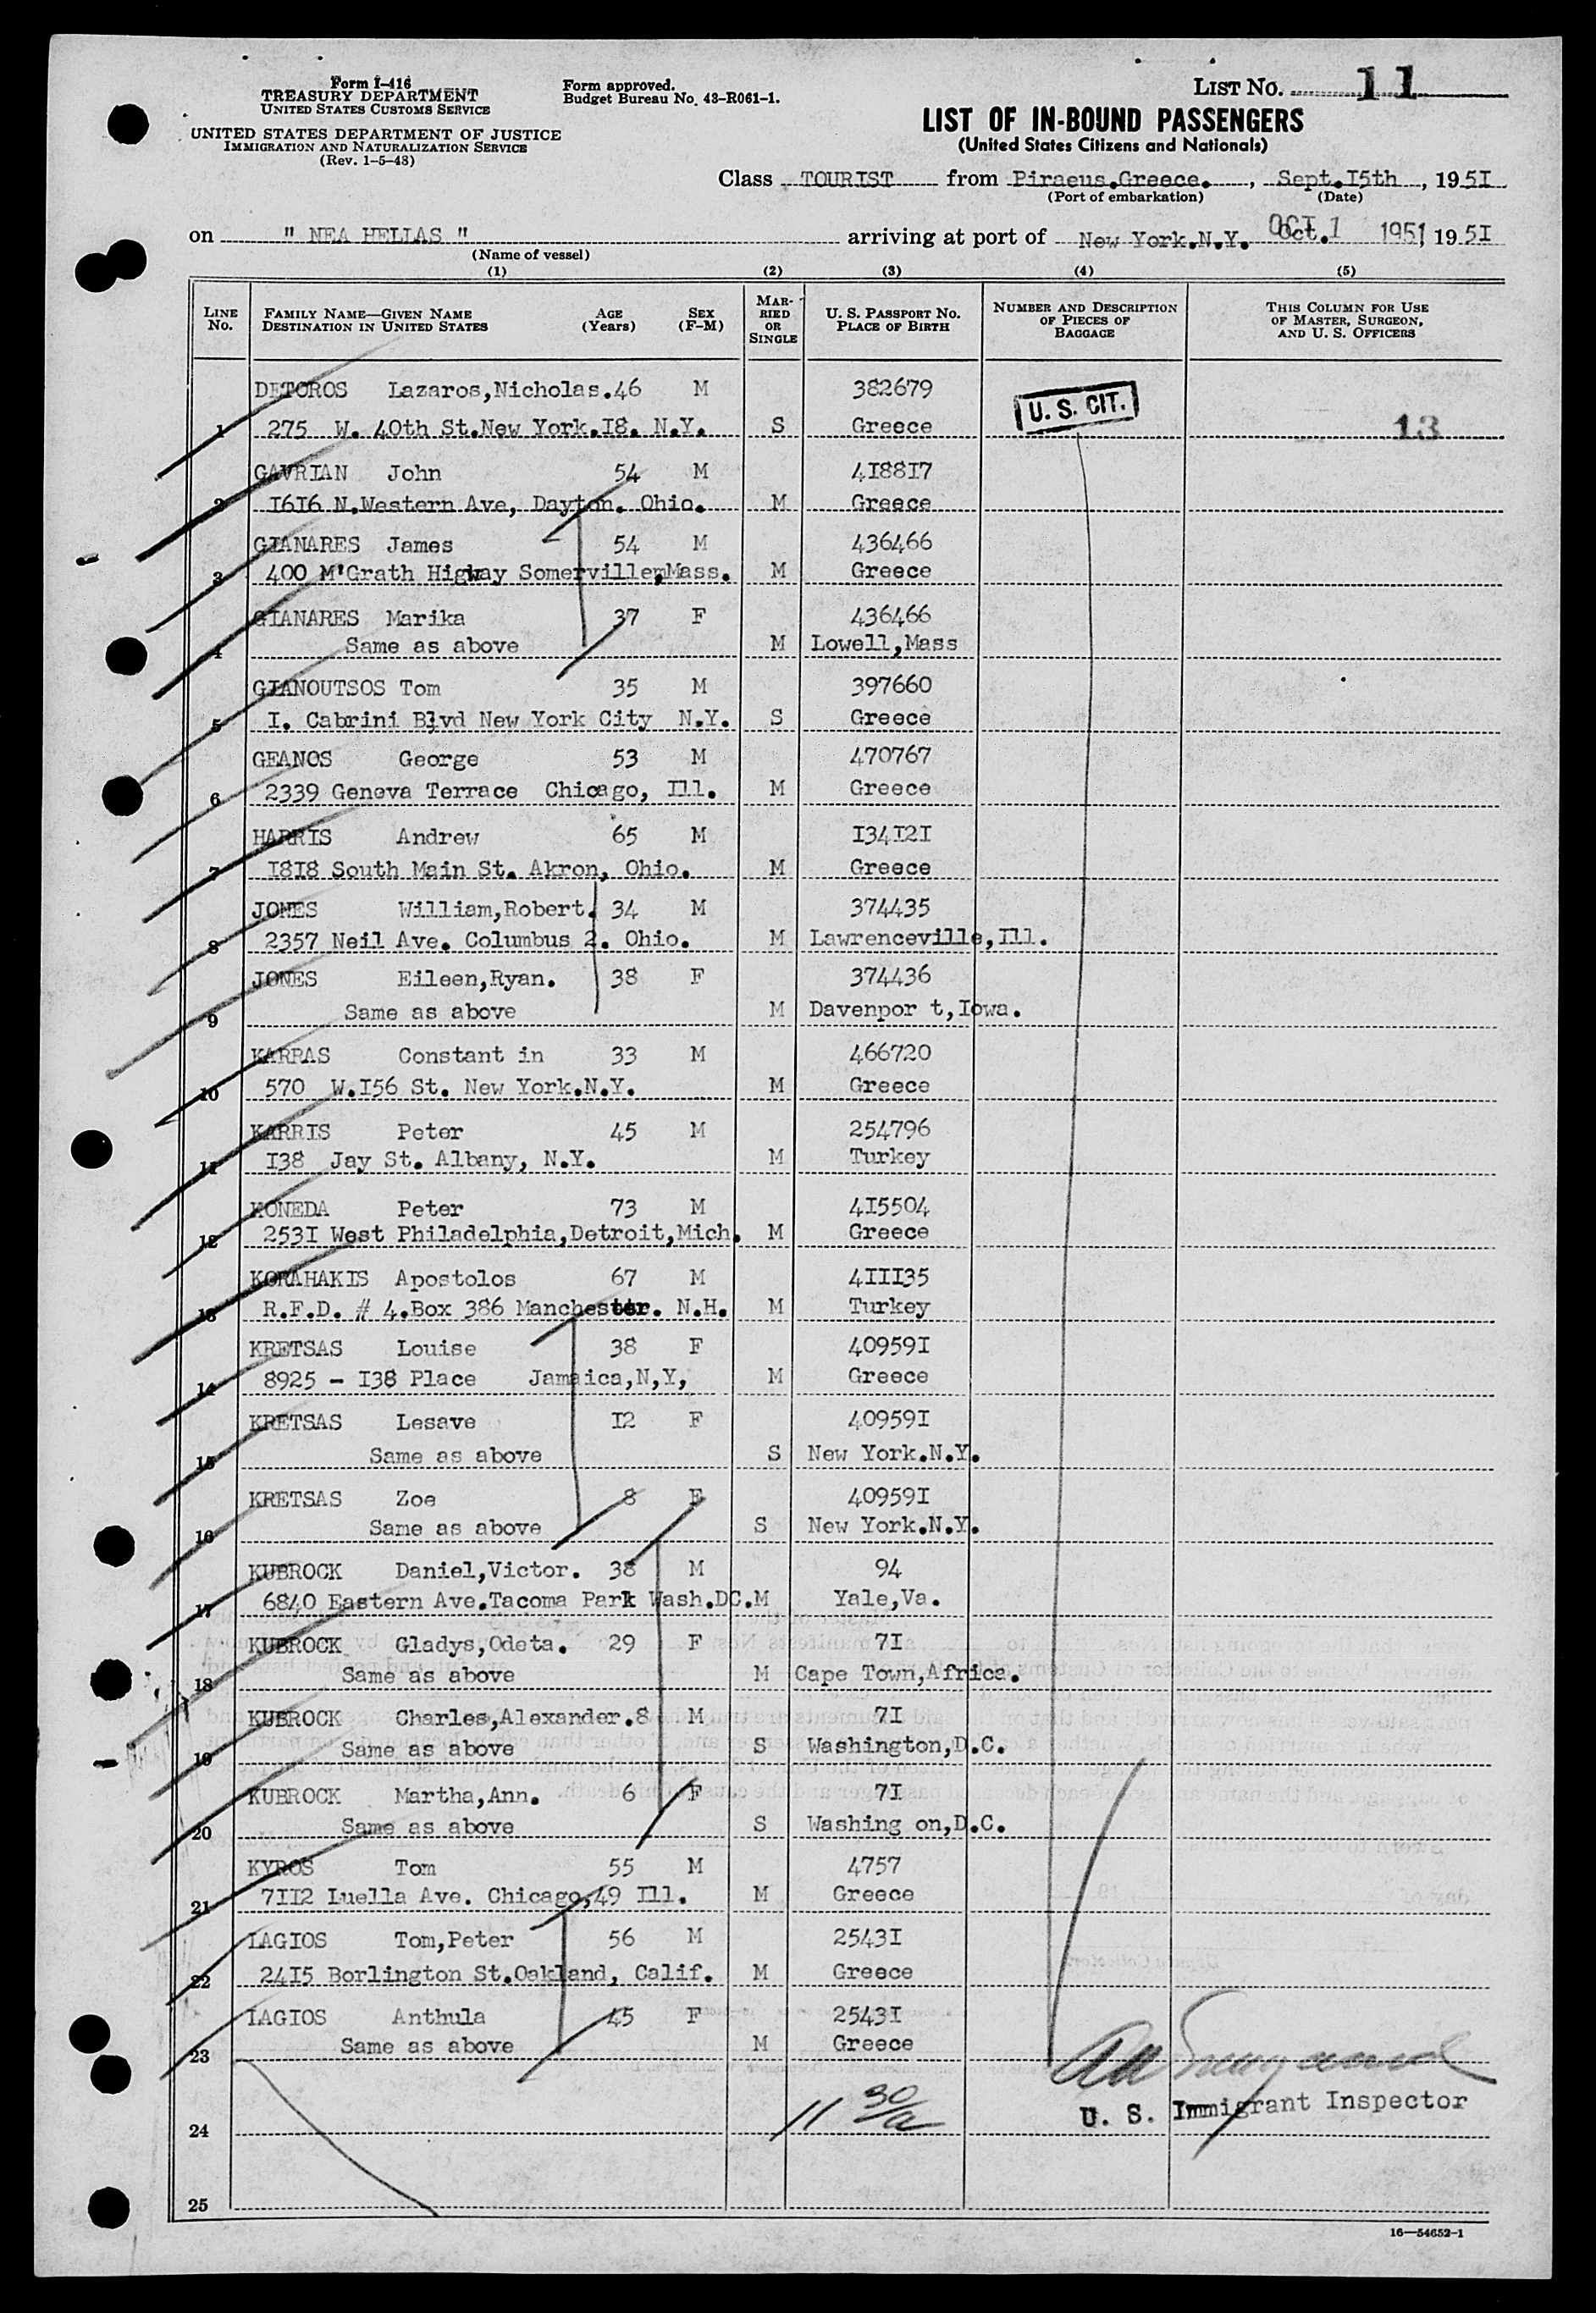 Form I-416
TREASURY DEPARTMENT
UNITED STATES CUSTOMS SERVICE
UNITED STATES DEPARTMENT OF JUSTICE
IMMIGRATION AND NATURALIZATION SERVICE
(Rev. 1-5-48)
Form approved.
Budget Bureau No. 43-R061-1.
LIST NO. 11
LIST OF IN-BOUND PASSENGERS
(United States Citizens and Nationals)
Class TOURIST from Piraeus.Greece. , Sept.I5th , 1951
(Port of embarkation) (Date)
on " NEA HELLAS " arriving at port of New York.N.Y. Oct. OCT 1 1951 1951
(Name of vessel)
(1) (2) (3) (4) (5)
LINE No. FAMILY NAME—GIVEN NAME DESTINATION IN UNITED STATES AGE (Years) SEX (F-M) MARRIED OR SINGLE U. S. PASSPORT NO. PLACE OF BIRTH NUMBER AND DESCRIPTION OF PIECES OF BAGGAGE THIS COLUMN FOR USE OF MASTER, SURGEON, AND U. S. OFFICERS
DETOROS Lazaros,Nicholas.46 M 382679
U. S. CIT.
1 275 W. 40th St.New York.I8. N.Y. S Greece 13
GAVRIAN John 54 M 4I88I7
2 I6I6 N.Western Ave, Dayton. Ohio. M Greece
GIANARES James 54 M 436466
3 400 M'Grath Higway Somerville,Mass. M Greece
GIANARES Marika 37 F 436466
4 Same as above M Lowell,Mass
GIANOUTSOS Tom 35 M 397660
5 I. Cabrini Blvd New York City N.Y. S Greece
GEANOS George 53 M 470767
6 2339 Geneva Terrace Chicago, Ill. M Greece
HARRIS Andrew 65 M I34I2I
7 I8I8 South Main St. Akron, Ohio. M Greece
JONES William,Robert. 34 M 374435
8 2357 Neil Ave. Columbus 2. Ohio. M Lawrenceville,Ill.
JONES Eileen,Ryan. 38 F 374436
9 Same as above M Davenpor t,Iowa.
KARRAS Constant in 33 M 466720
10 570 W.I56 St. New York.N.Y. M Greece
KARRIS Peter 45 M 254796
11 I38 Jay St. Albany, N.Y. M Turkey
KONEDA Peter 73 M 4I5504
12 253I West Philadelphia,Detroit,Mich. M Greece
KORAHAKIS Apostolos 67 M 4III35
13 R.F.D. # 4.Box 386 Manchester. N.H. M Turkey
KRETSAS Louise 38 F 40959I
14 8925 - I38 Place Jamaica,N,Y, M Greece
KRETSAS Lesave I2 F 40959I
15 Same as above S New York.N.Y.
KRETSAS Zoe 8 F 40959I
16 Same as above S New York.N.Y.
KUBROCK Daniel,Victor. 38 M 94
17 6840 Eastern Ave.Tacoma Park Wash.DC.M Yale,Va.
KUBROCK Gladys,Odeta. 29 F 7I
18 Same as above M Cape Town,Africa.
KUBROCK Charles,Alexander.8 M 7I
19 Same as above S Washington,D.C.
KUBROCK Martha,Ann. 6 F 7I
20 Same as above S Washing on,D.C.
KYROS Tom 55 M 4757
21 7II2 Luella Ave. Chicago,49 Ill. M Greece
LAGIOS Tom,Peter 56 M 2543I
22 24I5 Borlington St.Oakland, Calif. M Greece
LAGIOS Anthula 45 F 2543I
23 Same as above M Greece
11 30/a
U. S. Immigrant Inspector
24
25
16—54652-1